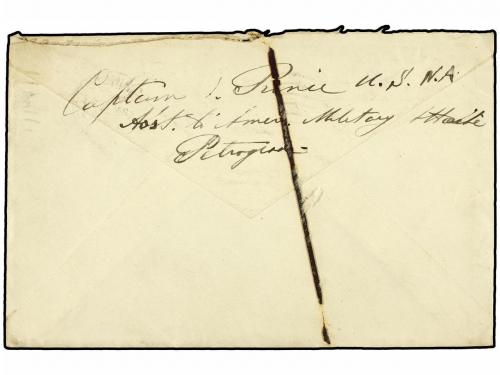 Captain E. Prince U.S.N.A.
Asst. to Amer. Military Attaché
Petrograd